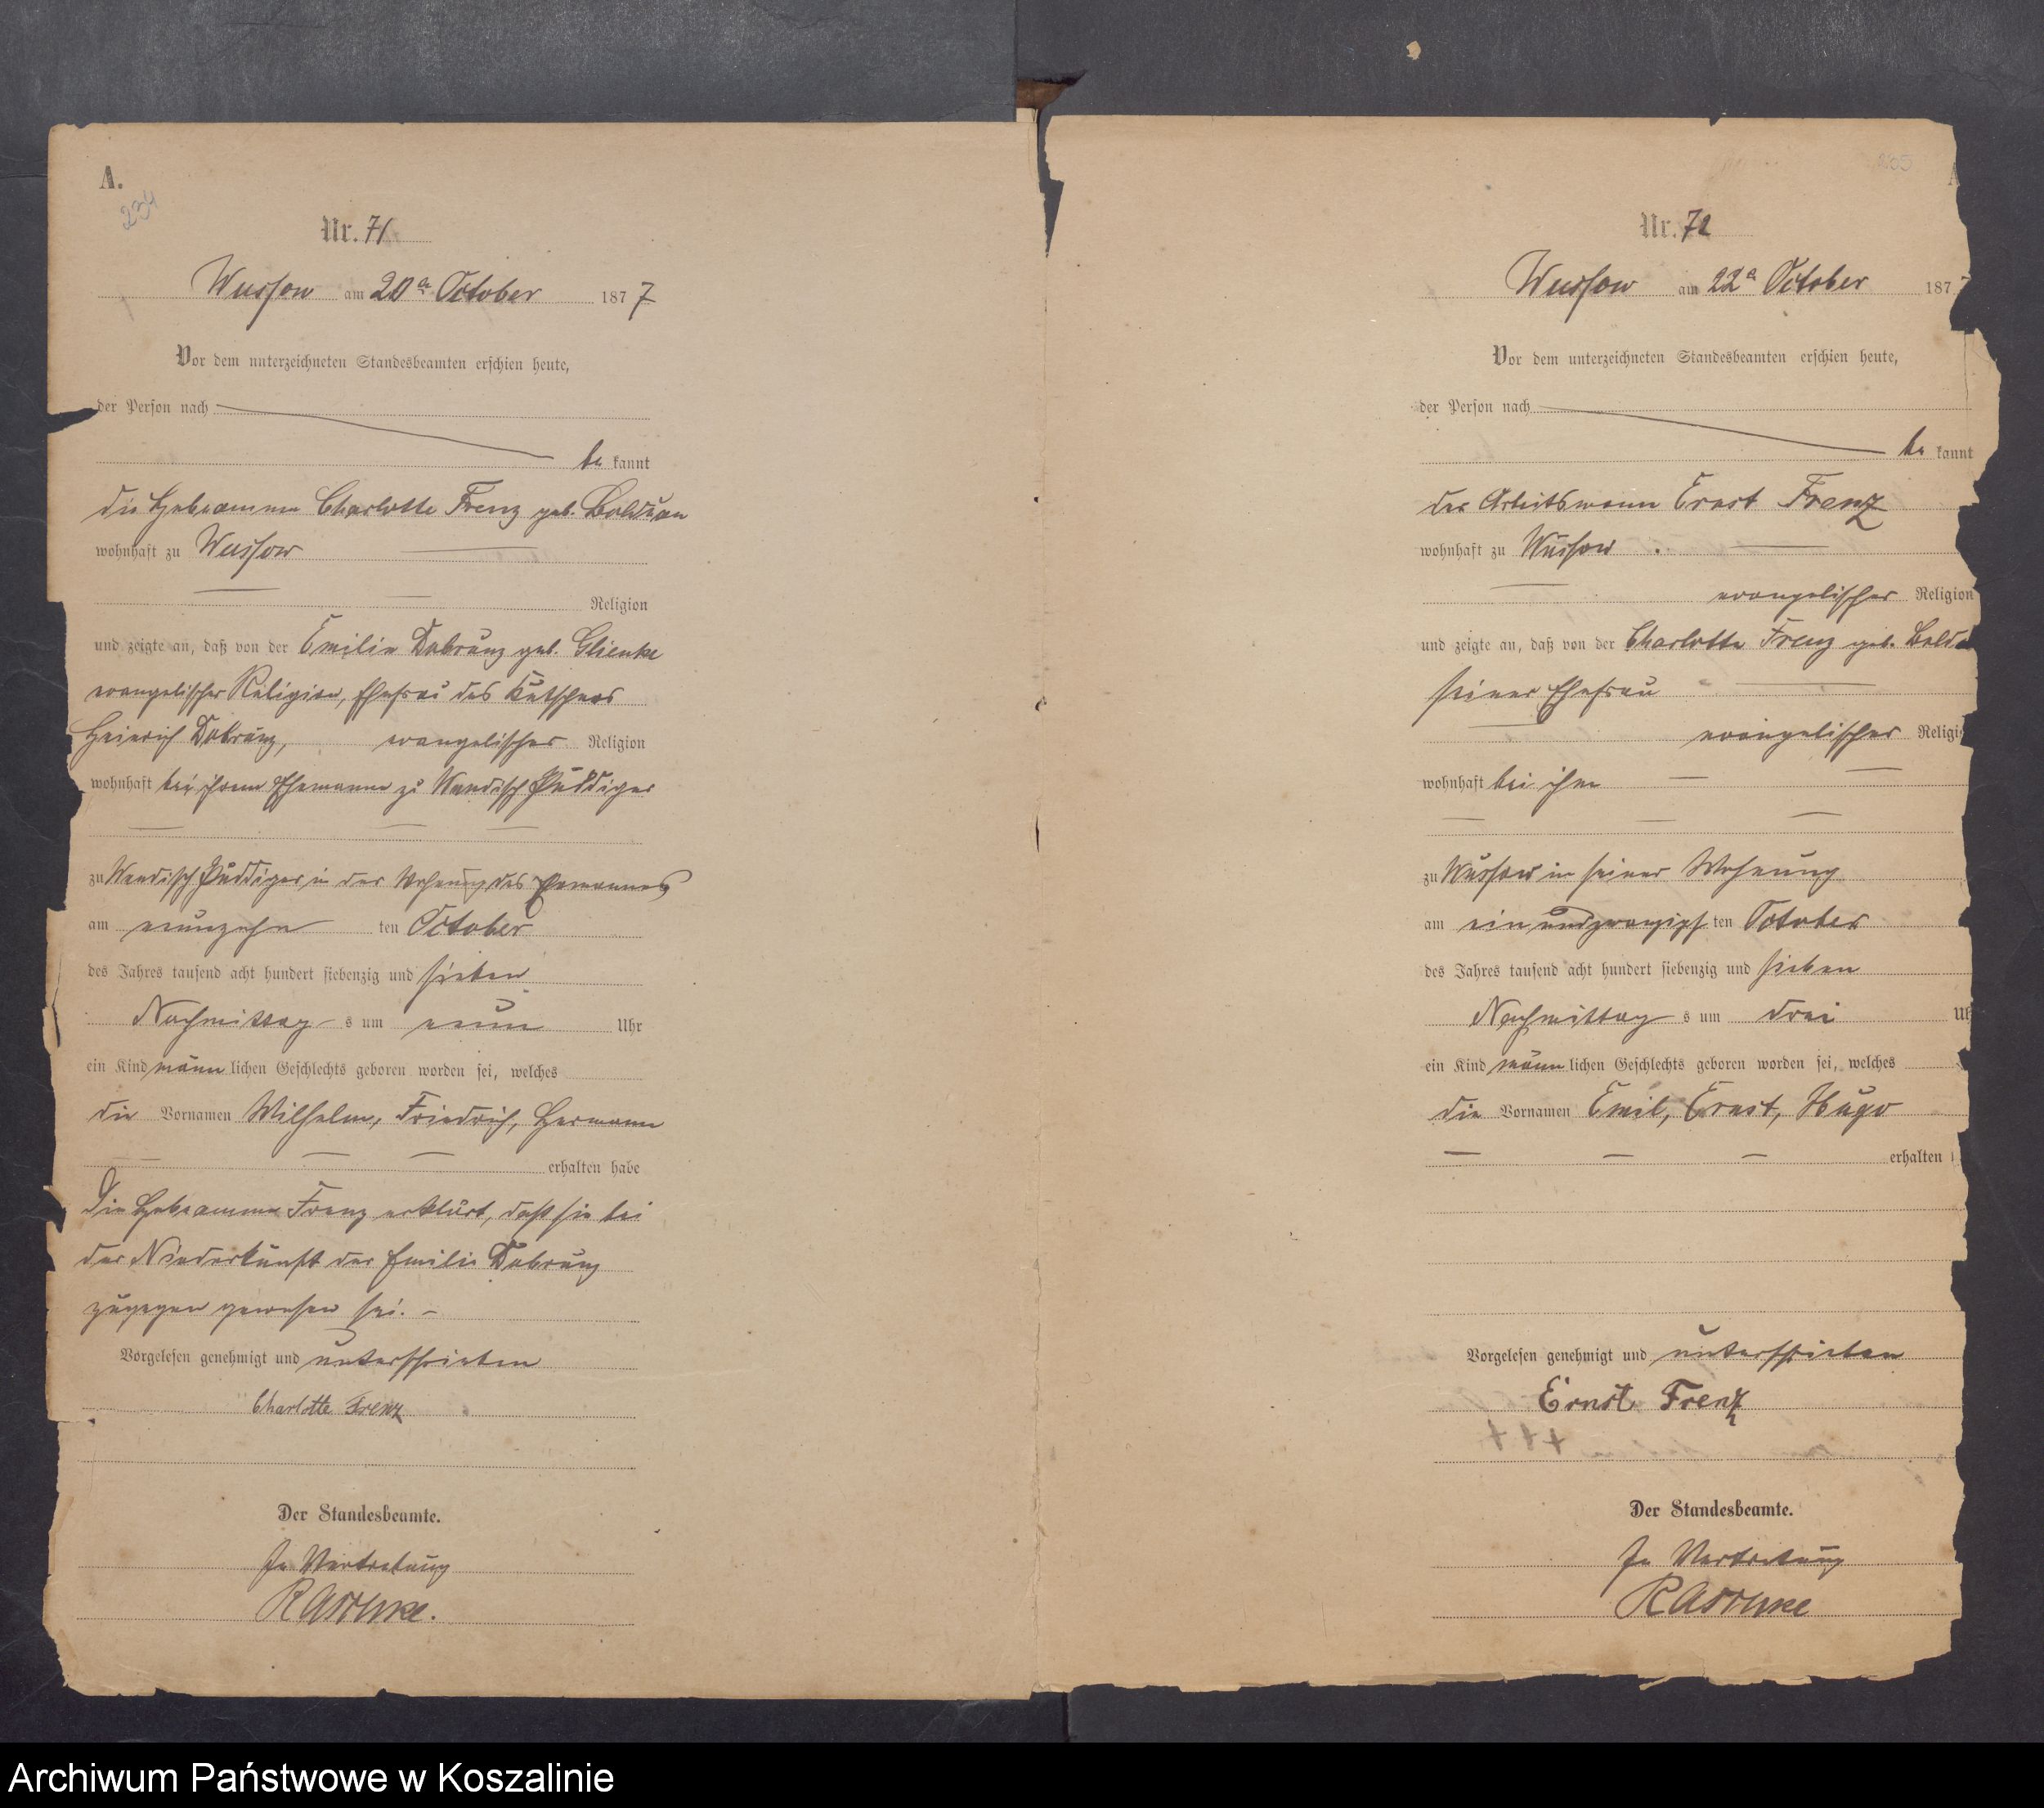 A.
234
Nr. 71
Wussow am 20ten October 1877
Vor dem unterzeichneten Standesbeamten erschien heute,
der Person nach
be kannt
die Hebeamme Charlotte Frenz geb. Balduan
wohnhaft zu Wussow
Religion
und zeigte an, daß von der Emilie Dobrunz geb. Glienke
evangelischer Religion, Ehefrau des Kutschers
Heinrich Dobrunz, evangelischer Religion
wohnhaft bei ihrem Ehemanne zu Wendisch Puddiger
zu Wendisch Puddiger in der Wohnung des Ehemannes
am neunzehn ten October
des Jahres tausend acht hundert siebenzig und sieben
Nachmittag s um neun Uhr
ein Kind männ lichen Geschlechts geboren worden sei, welches
die Vornamen Wilhelm, Friedrich, Hermann
erhalten habe
Die Hebeamme Frenz erklärt, daß sie bei
der Niederkunft der Emilie Dobrunz
zugegen gewesen sei. –
Vorgelesen genehmigt und unterschrieben
Charlotte Frenz
Der Standesbeamte.
In Vertretung
Raschke.
Nr. 72
Wussow am 22ten October 187
Vor dem unterzeichneten Standesbeamten erschien heute,
der Person nach
be kannt
der Arbeitsmann Ernst Frenz
wohnhaft zu Wussow
evangelischer Religion
und zeigte an, daß von der Charlotte Frenz geb. Bald
seiner Ehefrau
evangelischer Religi
wohnhaft bei ihm
zu Wussow in seiner Wohnung
am ein und zwanzigst ten October
des Jahres tausend acht hundert siebenzig und sieben
Nachmittag s um drei Uh
ein Kind männ lichen Geschlechts geboren worden sei, welches
die Vornamen Emil, Ernst, Hugo
erhalten
Vorgelesen genehmigt und unterschrieben
Ernst Frenz
Der Standesbeamte.
In Vertretung
Raschke
Archiwum Państwowe w Koszalinie